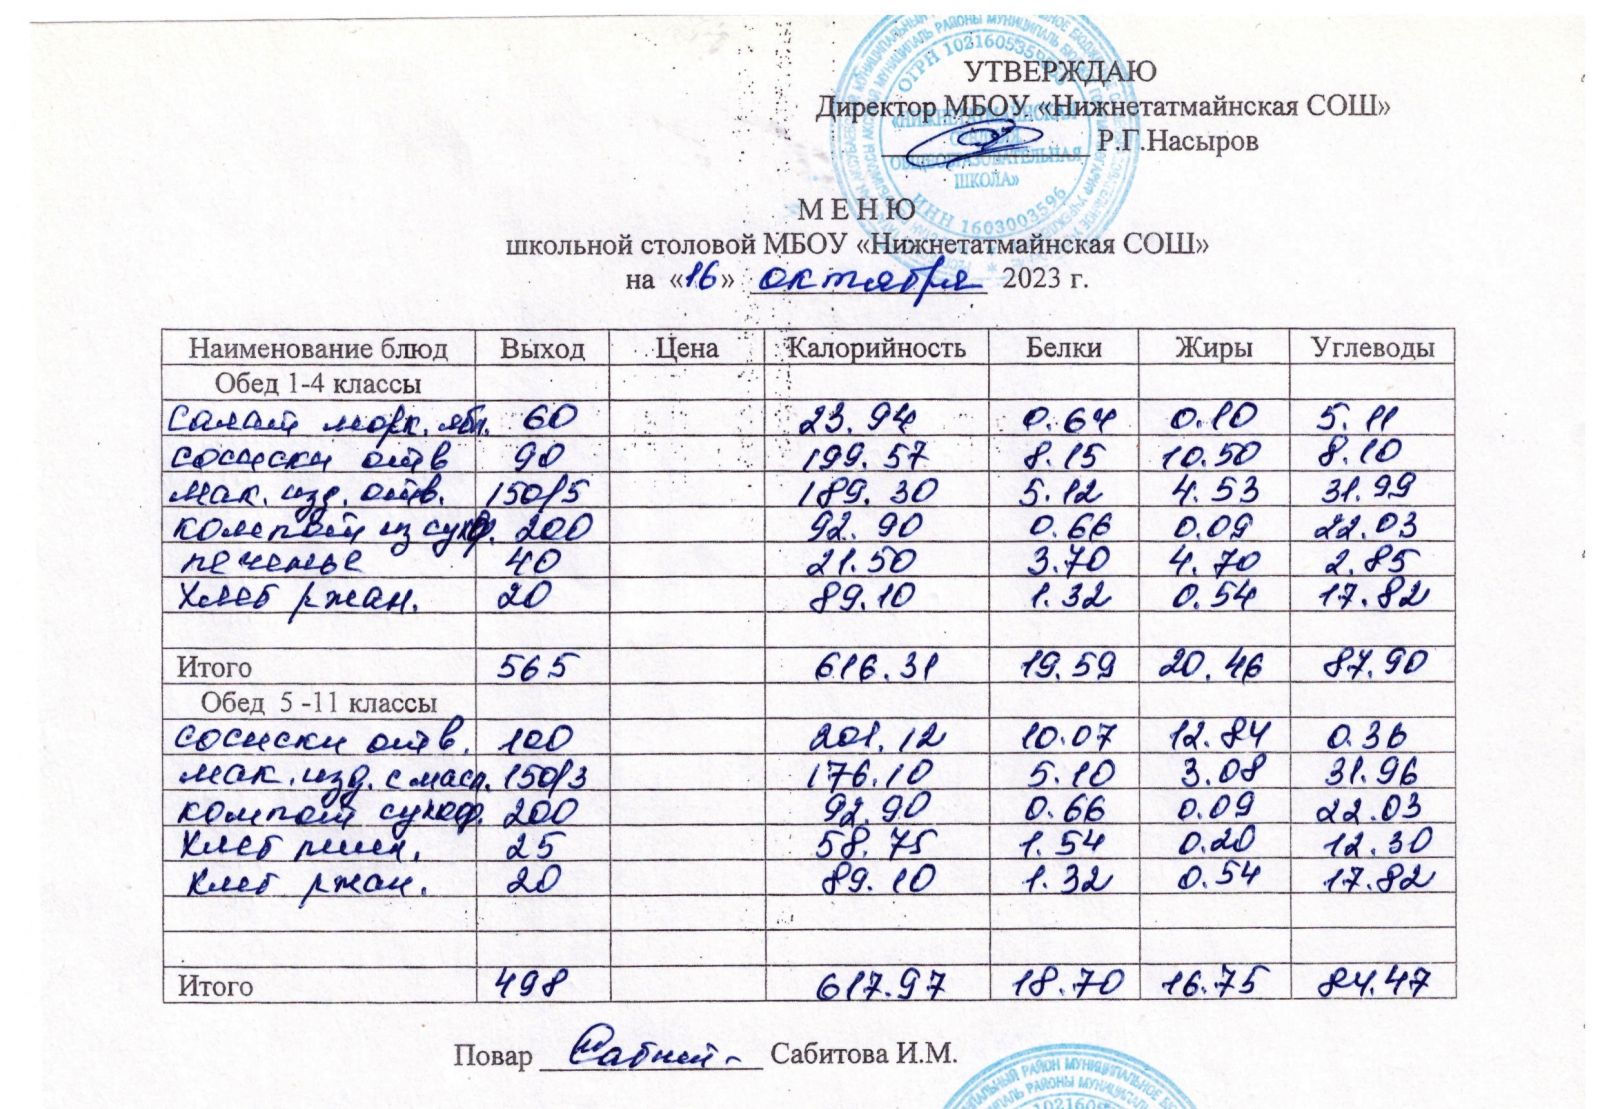 УТВЕРЖДАЮ
Директор МБОУ «Нижнетатмайнская СОШ»
Р.Г.Насыров
ОГРН 102160535
«НИЖНЕТАТМАИНСКАЯ
СРЕДНЯЯ
ОБЩЕОБРАЗОВАТЕЛЬНАЯ
ШКОЛА»
ИНН 1603003596
М Е Н Ю
школьной столовой МБОУ «Нижнетатмайнская СОШ»
на «16» октября 2023 г.
Наименование блюд Выход Цена Калорийность Белки Жиры Углеводы
Обед 1-4 классы
Салат морк. ябл. 60 23.94 0.64 0.10 5.11
сосиски отв 90 199.57 8.15 10.50 8.10
мак. изд. отв. 150/5 189.30 5.12 4.53 31.99
компот из сухф. 200 92.90 0.66 0.09 22.03
печенье 40 21.50 3.70 4.70 2.85
Хлеб ржан. 20 89.10 1.32 0.54 17.82
Итого 565 616.31 19.59 20.46 87.90
Обед 5 -11 классы
сосиски отв. 100 201.12 10.07 12.84 0.36
мак. изд. с масл. 150/3 176.10 5.10 3.08 31.96
компот сухоф. 200 92.90 0.66 0.09 22.03
Хлеб пшен. 25 58.75 1.54 0.20 12.30
Хлеб ржан. 20 89.10 1.32 0.54 17.82
Итого 498 617.97 18.70 16.75 84.47
Повар Сабитова И.М.